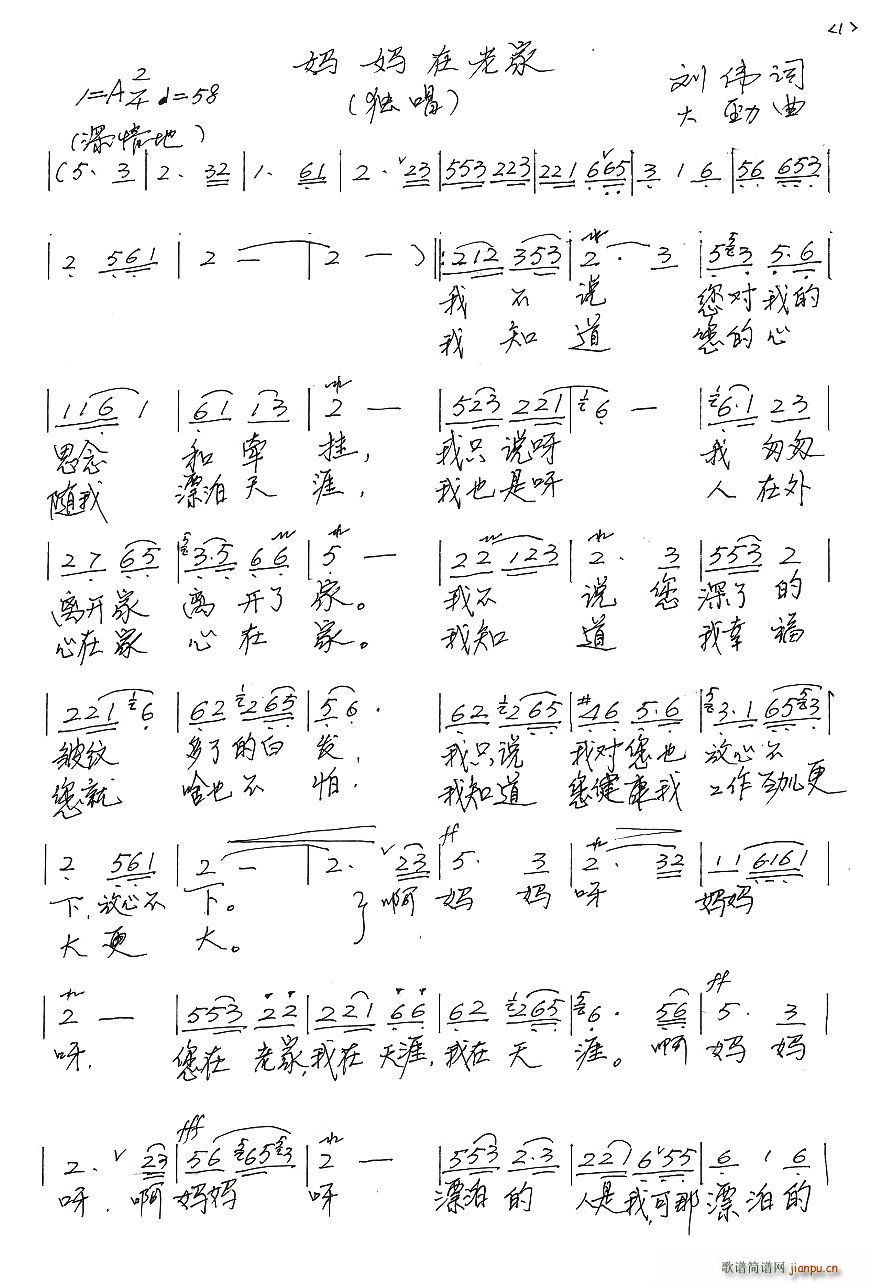 <1>
妈妈在老家
1=A 2/4 d=58
(独唱)
刘伟词
大勁曲
(深情地)
|(5. 3|2. 32|1. 61|2. ∨23|553 223|221 6∨665|3 1 6|56 653|
|2 561|2 —|2 — )‖:212 353|2. 3|553 5.6|
我不说 您对我的
我知道 您的心
|116 1|61 13|2 —|523 221|6 —|6.1 23|
思念 和牵挂, 我只说呀 我匆匆
随我 漂泊天涯, 我也是呀 人在外
|27 65|3.5 66|5 —|22 123|2. 3|553 2|
离开家 离开了家。 我不说您深了的
心在家 心在家。 我知道 我幸福
|221 6|62 265|5 6.|62 265|#46 5.6|3.1 6553|
皱纹 多了的白发, 我只说 我对您也 放心不
您就 啥也不怕, 我知道 您健康我 工作劲儿更
|2 561|2 —|2. ∨23|ff 5. 3|2. 32|11 6161|
下,放心不下。 啊妈妈呀 妈妈
大更大。
ff
|2 —|553 22|221 66|62 265|6. 56|5. 3|
呀, 您在老家,我在天涯,我在天涯。啊妈妈
fff
|2. ∨23|56 56553|2 —|553 2.3|221 6∨55|6 1 6|
呀,啊妈妈呀 漂泊的人是我,可那漂泊的
歌谱简谱网
jianpu.cn